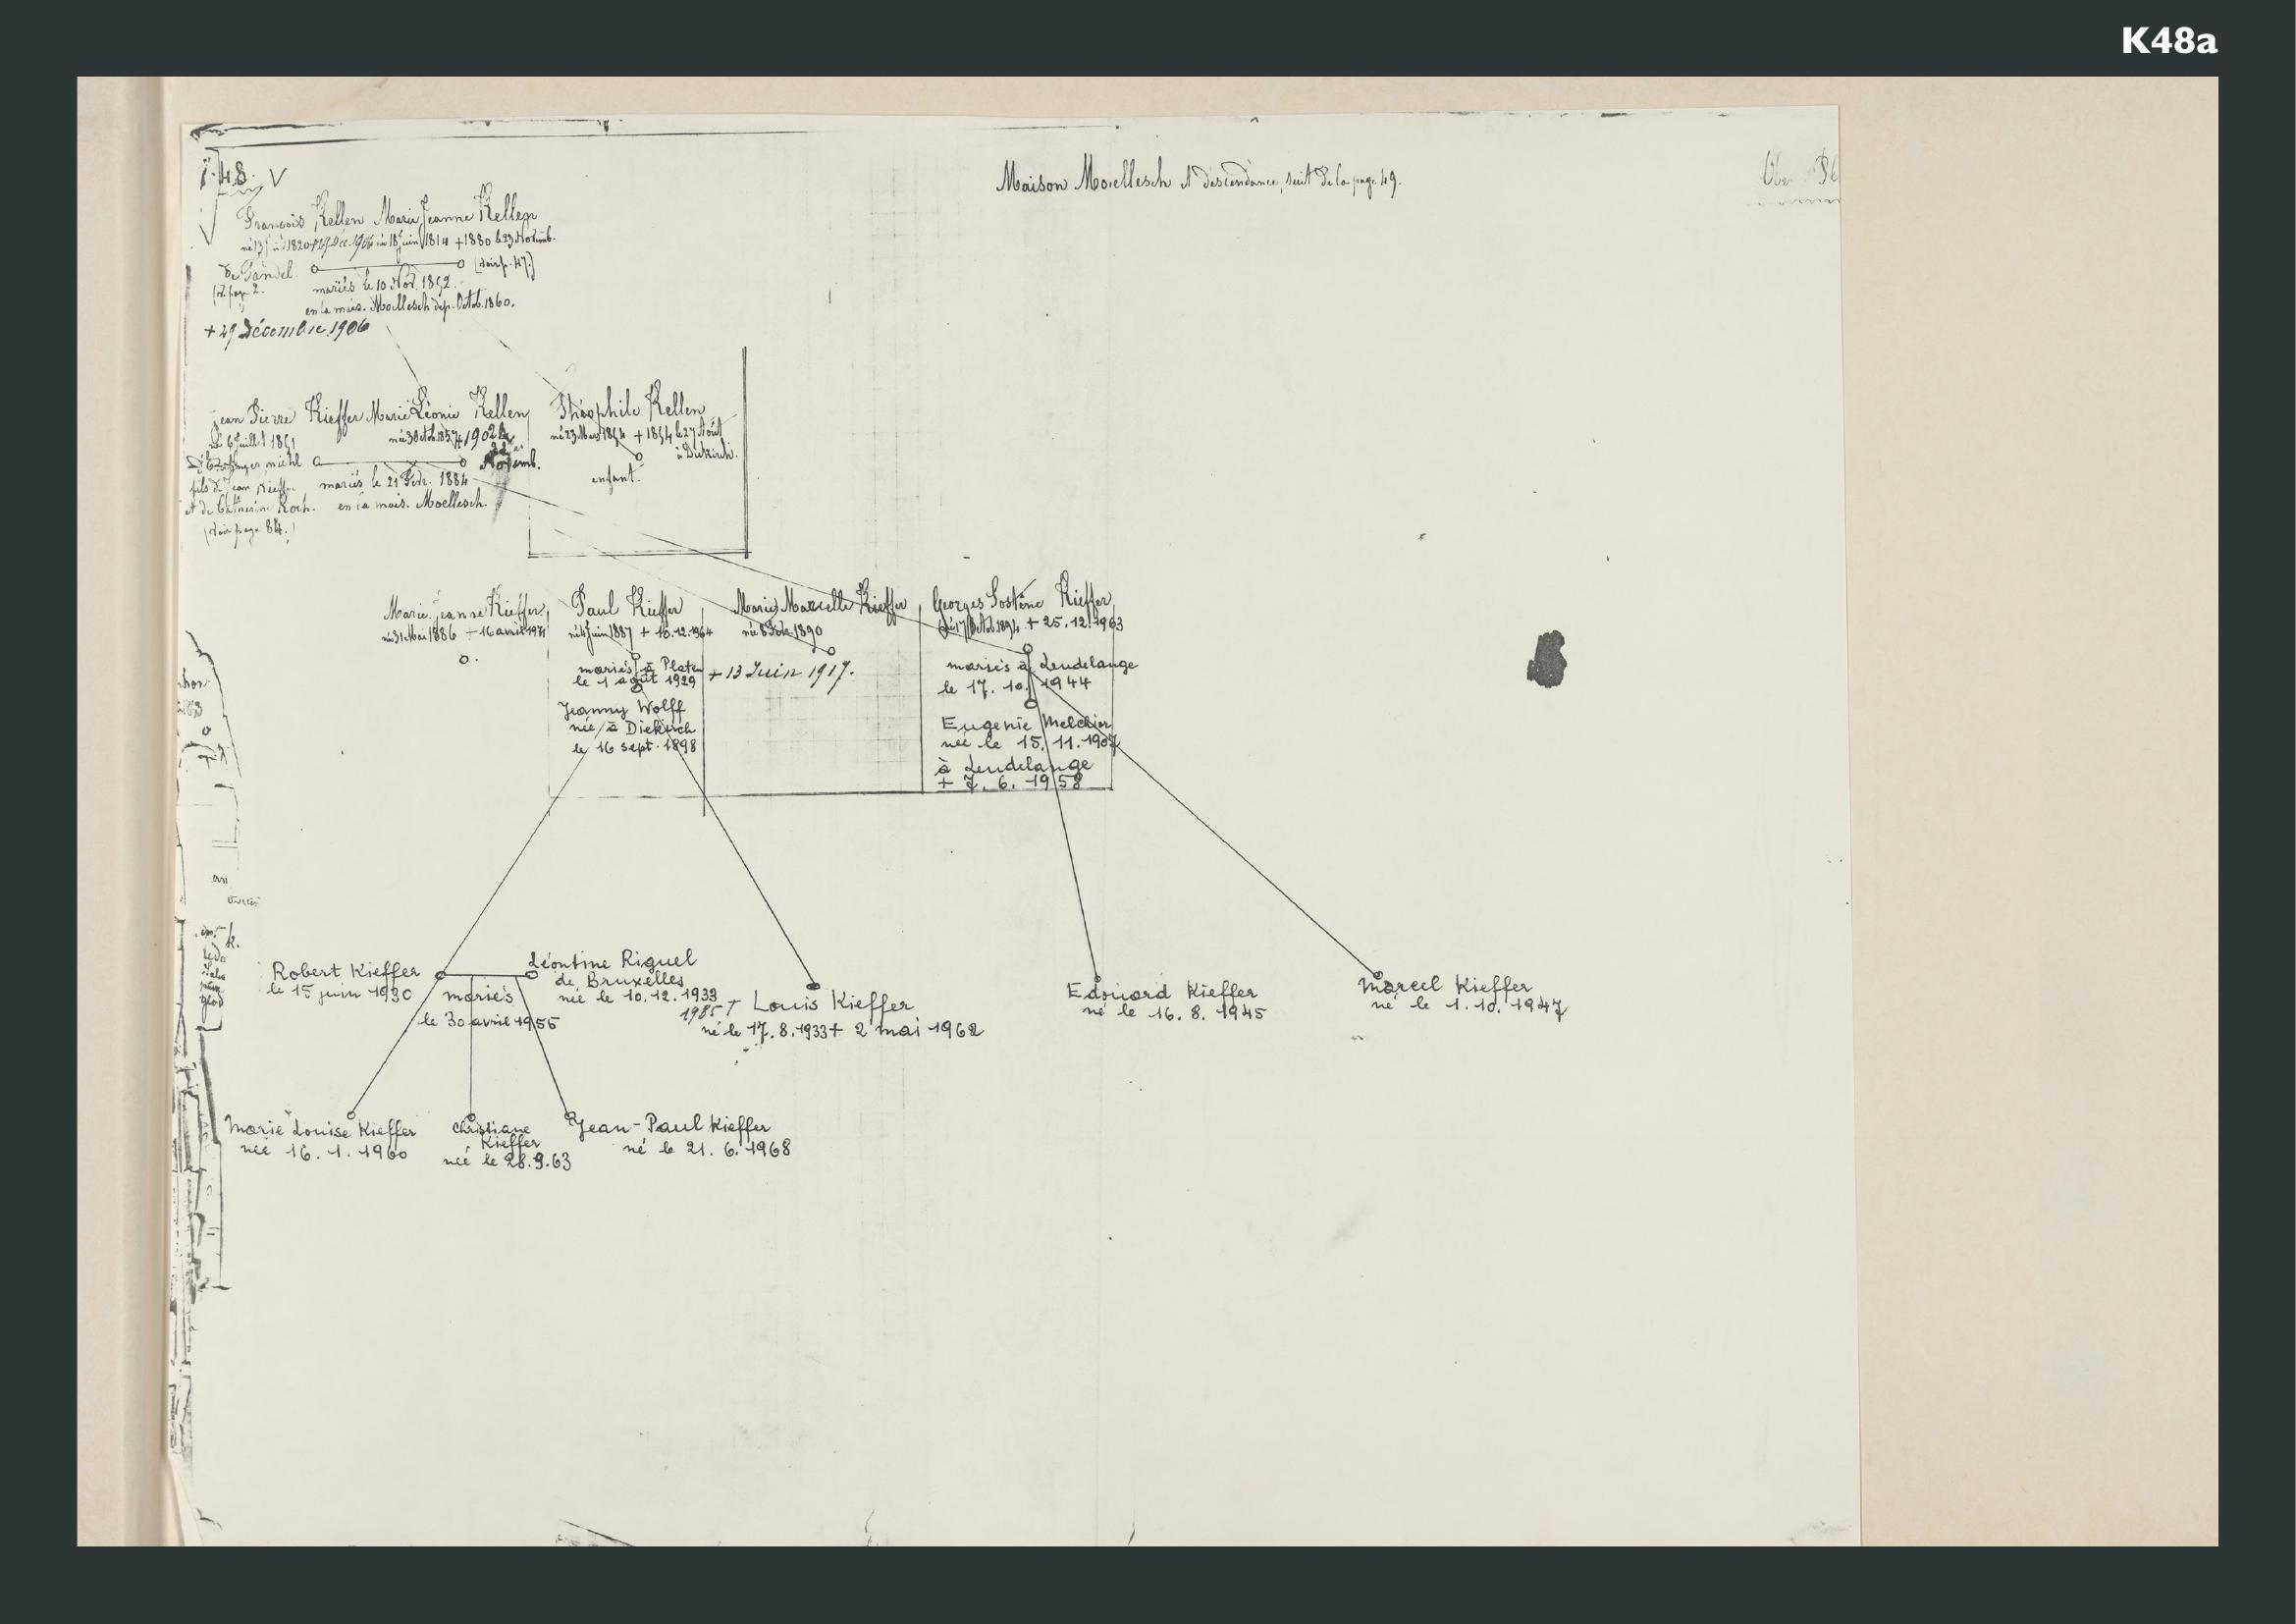 K48a
48. V
Maison Moellesch et descendance, suit de la page 49.
François Kellen Marie Jeanne Kellen
1820 +29 Déc. 1906 18 juin 1814 +1880 le 23 Novemb.
de Tandel. (voir p. 47.)
mariés le 10 Nov. 1852.
en la mais. Moellesch dep. Octob. 1860.
+ 29 Décembre 1906
Jean Pierre Kieffer Marie Léonie Kellen
né 6 Juillet 1851 née 30 Octob. 1857 + 1902 le
Novemb.
fils de Jean Kieffer mariés le 21 Febr. 1884
et de Catherine Koch. en la mais. Moellesch.
(voir page 84.)
Théophile Kellen
né 23 Mars 1854 + 1854 le 27 Août
à Diekirch.
enfant.
Marie Jeanne Kieffer
née 31 Mai 1886 + 16 avril 1971
Paul Kieffer
né 4 Juin 1887 + 10.12.1964
mariés à Platen
le 1 août 1929
Jeanny Wolff
née à Diekirch
le 16 sept. 1898
Marie Marcelle Kieffer
née 8 Febr. 1890
+ 13 Juin 1917.
Georges Sostène Kieffer
né 17 Octob. 1894 + 25.12.1963
mariés à Leudelange
le 17. 10. 1944
Eugenie Melchior
née le 15. 11. 1907
à Leudelange
+ 7. 6. 1958
Robert Kieffer
le 15 juin 1930
mariés
le 30 avril 1955
Léontine Riguel
de Bruxelles
née le 10. 12. 1933
1985 +
Louis Kieffer
né le 17. 8. 1933 + 2 mai 1962
Edouard Kieffer
né le 16. 8. 1945
Marcel Kieffer
né le 1. 10. 1947
Marie Louise Kieffer
née 16. 1. 1960
Christiane
Kieffer
née le 28.9.63
Jean-Paul Kieffer
né le 21. 6. 1968